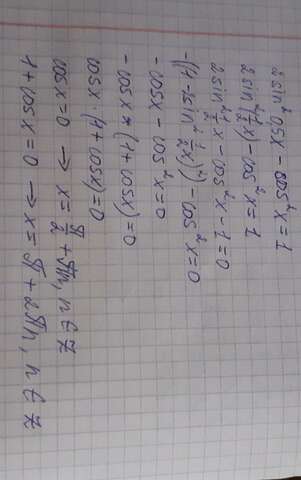 2sin² 0,5x - cos²x = 1
2sin²(½x) - cos²x = 1
2sin² ½x - cos²x - 1 = 0
-(1 - sin² ½x)²) - cos²x = 0
-cosx - cos²x = 0
-cosx * (1 + cosx) = 0
cosx · (1 + cosx) = 0
cosx = 0 → x = π/2 + πn, n ∈ Z
1 + cosx = 0 → x = π + 2πn, n ∈ Z